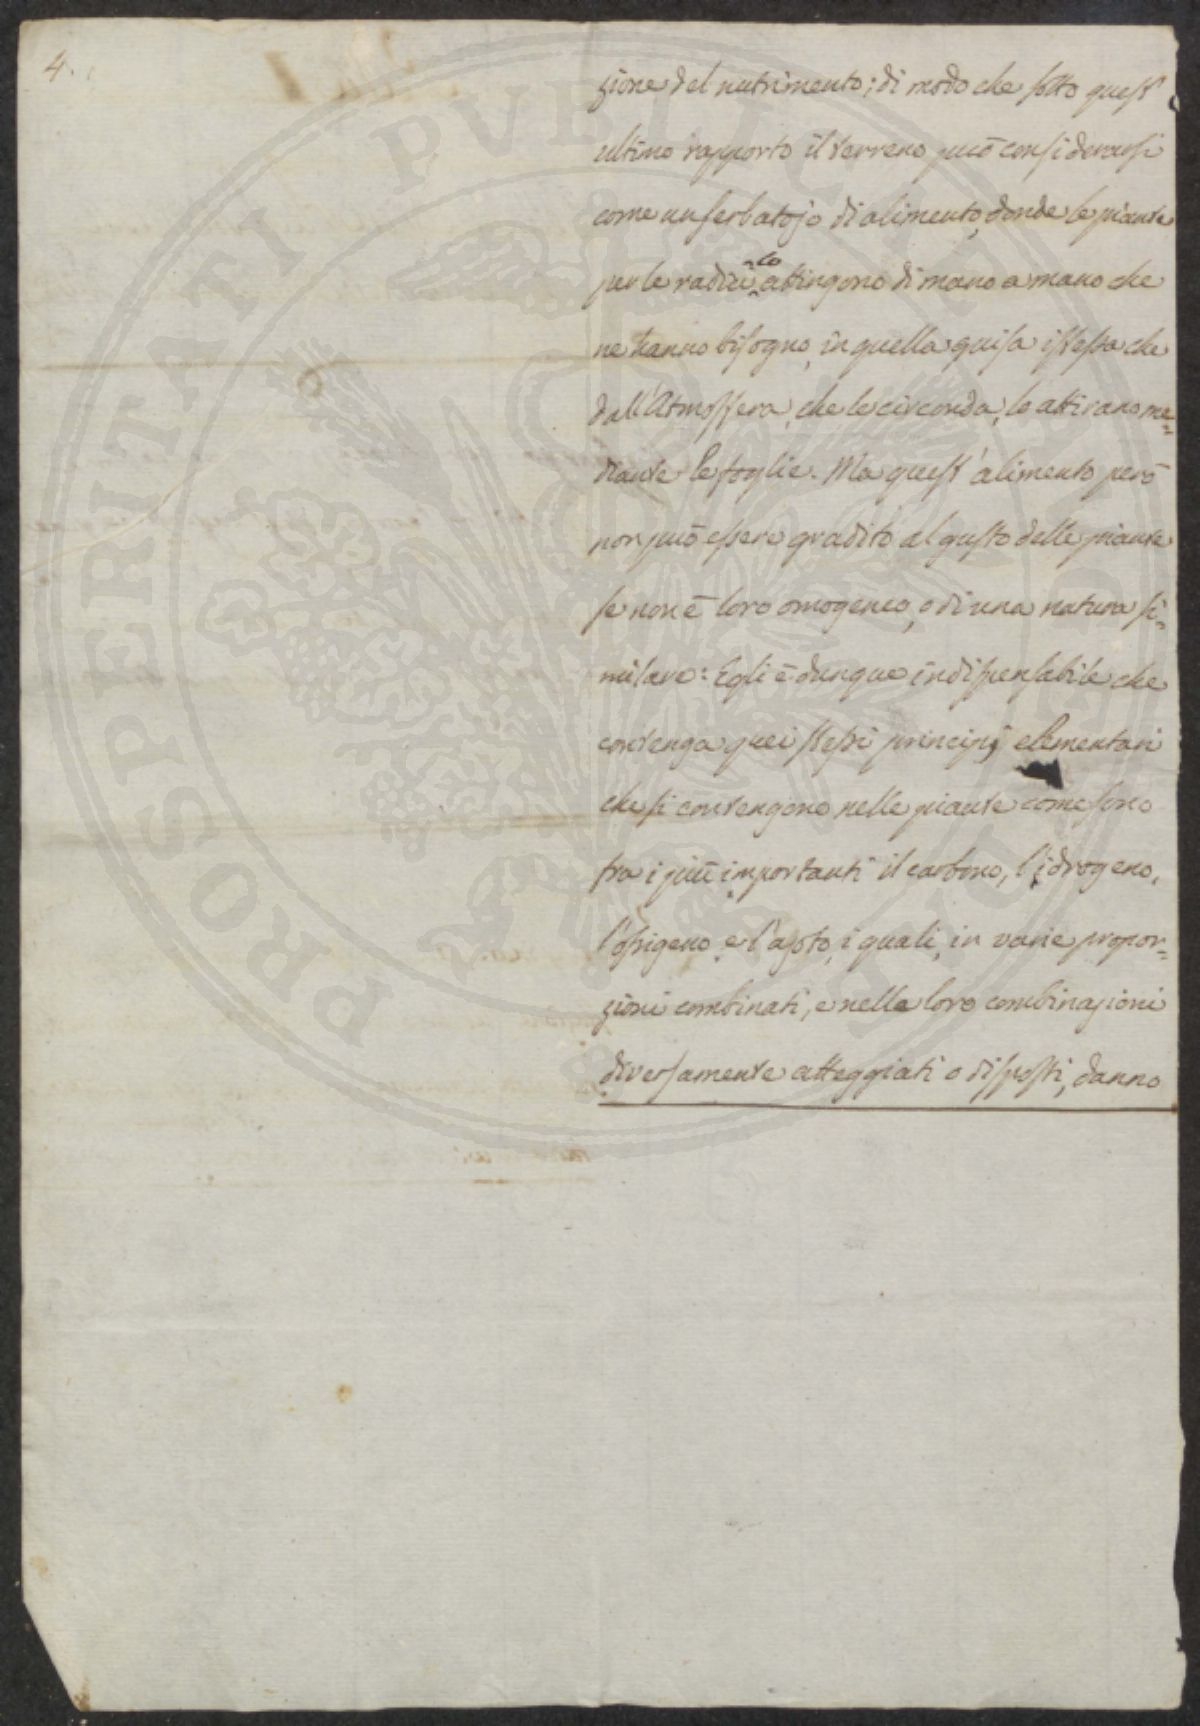 4.
zione del nutrimento; di modo che sotto quest'
ultimo rapporto il terreno può considerarsi
come un serbatojo di alimento, donde le piante
per le radici lo attingono di mano a mano che
ne hanno bisogno, in quella guisa istessa che
dall'Atmosfera, che le circonda, lo attirano me=
diante le foglie. Ma quest'alimento però
non può essere gradito al gusto delle piante
se non è loro omogeneo, o di una natura si=
milare: Egli è dunque indispensabile che
contenga quei stessi principj elementari
che si contengono nelle piante come sono
tra i più importanti il carbono, l'idrogeno,
l'ossigeno, e l'azoto, i quali, in varie propor=
zioni combinati, e nelle loro combinazioni
diversamente atteggiati o disposti, danno
PROSPERITATI PVBLICAE